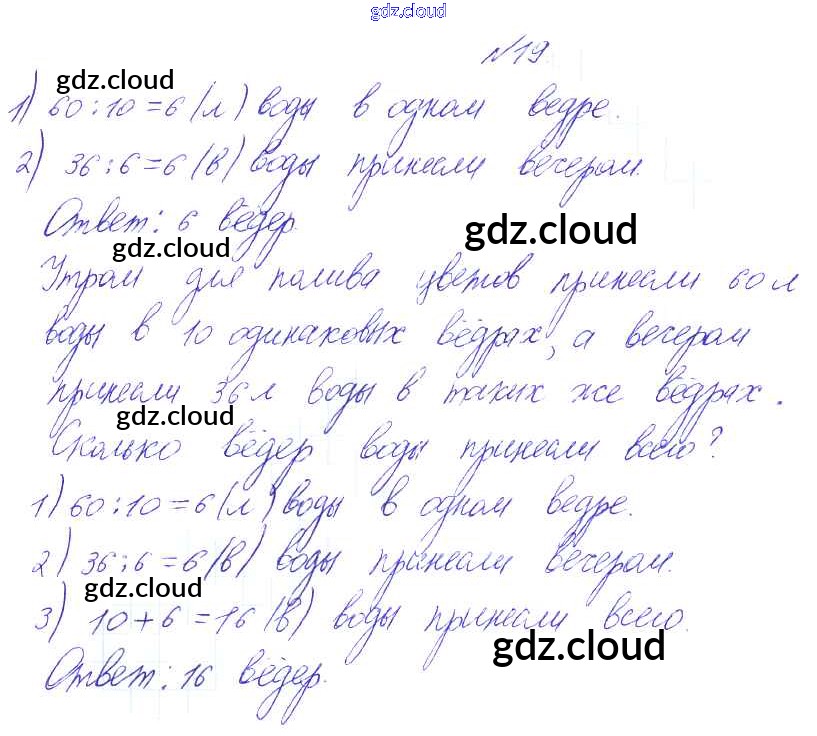 gdz.cloud
№19.
gdz.cloud
1) 60:10=6 (л) воды в одном ведре.
2) 36:6=6 (в) воды принесли вечером.
Ответ: 6 вёдер.
gdz.cloud
gdz.cloud
Утром для полива цветов принесли 60 л
воды в 10 одинаковых вёдрах, а вечером
принесли 36 л воды в таких же вёдрах.
gdz.cloud
Сколько вёдер воды принесли всего?
1) 60:10=6 (л) воды в одном ведре.
2) 36:6=6 (в) воды принесли вечером.
gdz.cloud
3) 10+6=16 (в) воды принесли всего.
gdz.cloud
Ответ: 16 вёдер.